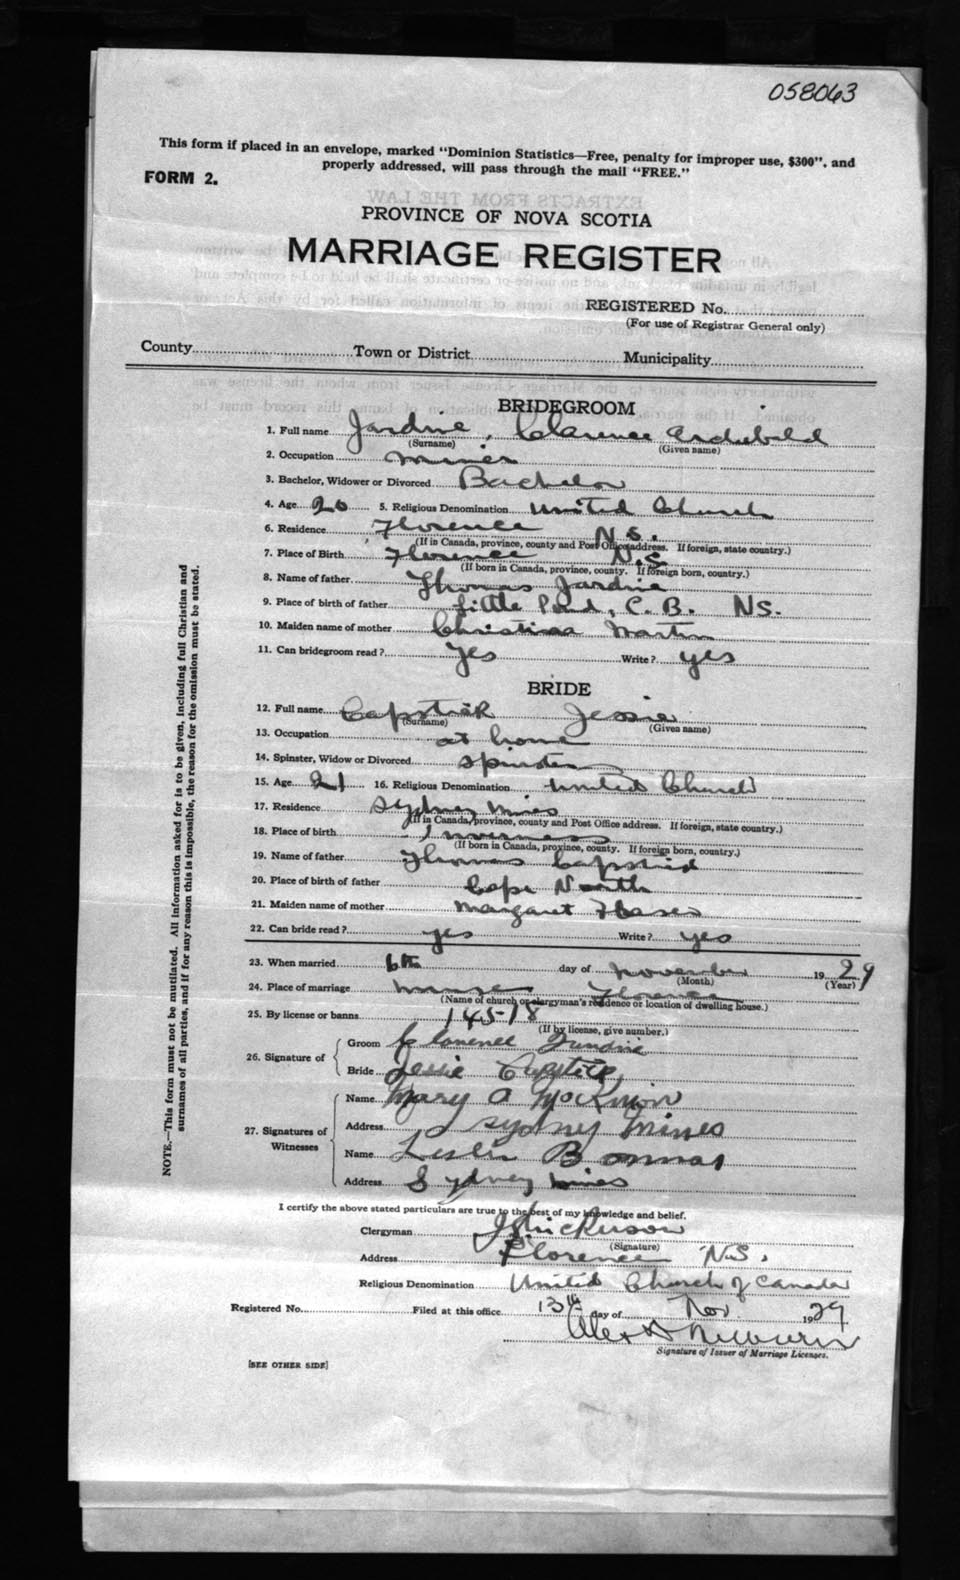 058063
This form if placed in an envelope, marked "Dominion Statistics—Free, penalty for improper use, $300", and
properly addressed, will pass through the mail "FREE."
FORM 2.
PROVINCE OF NOVA SCOTIA
MARRIAGE REGISTER
REGISTERED No.
(For use of Registrar General only)
County Town or District Municipality
BRIDEGROOM
1. Full name Jardine, Clarence Archibald
(Surname) (Given name)
2. Occupation miner
3. Bachelor, Widower or Divorced Bachelor
4. Age 20 5. Religious Denomination United Church
6. Residence Florence N.S.
(If in Canada, province, county and Post Office address. If foreign, state country.)
7. Place of Birth Florence N.S
(If born in Canada, province, county. If foreign born, country.)
8. Name of father Thomas Jardine
9. Place of birth of father Little Pond, C. B. NS.
10. Maiden name of mother Christina Martin
11. Can bridegroom read? Yes Write? yes
BRIDE
12. Full name Capstick Jessie
(Surname) (Given name)
13. Occupation at home
14. Spinster, Widow or Divorced Spinster
15. Age 21 16. Religious Denomination United Church
17. Residence Sydney Mines
(If in Canada, province, county and Post Office address. If foreign, state country.)
18. Place of birth Inverness
(If born in Canada, province, county. If foreign born, country.)
19. Name of father Thomas Capstick
20. Place of birth of father Cape North
21. Maiden name of mother Margaret
22. Can bride read? yes Write? yes
23. When married 6th day of November 1929
(Month) (Year)
24. Place of marriage manse Florence
(Name of church or clergyman's residence or location of dwelling house.)
25. By license or banns 145-18
(If by license, give number.)
26. Signature of Groom Clarence
Bride Jessie
27. Signatures of Witnesses Name Mary A McKinnon
Address Sydney Mines
Name Leslie
Address Sydney Mines
I certify the above stated particulars are true to the best of my knowledge and belief.
Clergyman
(Signature)
Address Florence N.S.
Religious Denomination United Church of Canada
Registered No. Filed at this office 13th day of Nov. 1929
Signature of Issuer of Marriage Licenses.
[SEE OTHER SIDE]
NOTE.—This form must not be mutilated. All information asked for is to be given, including full Christian and
surnames of all parties, and if for any reason this is impossible, the reason for the omission must be stated.